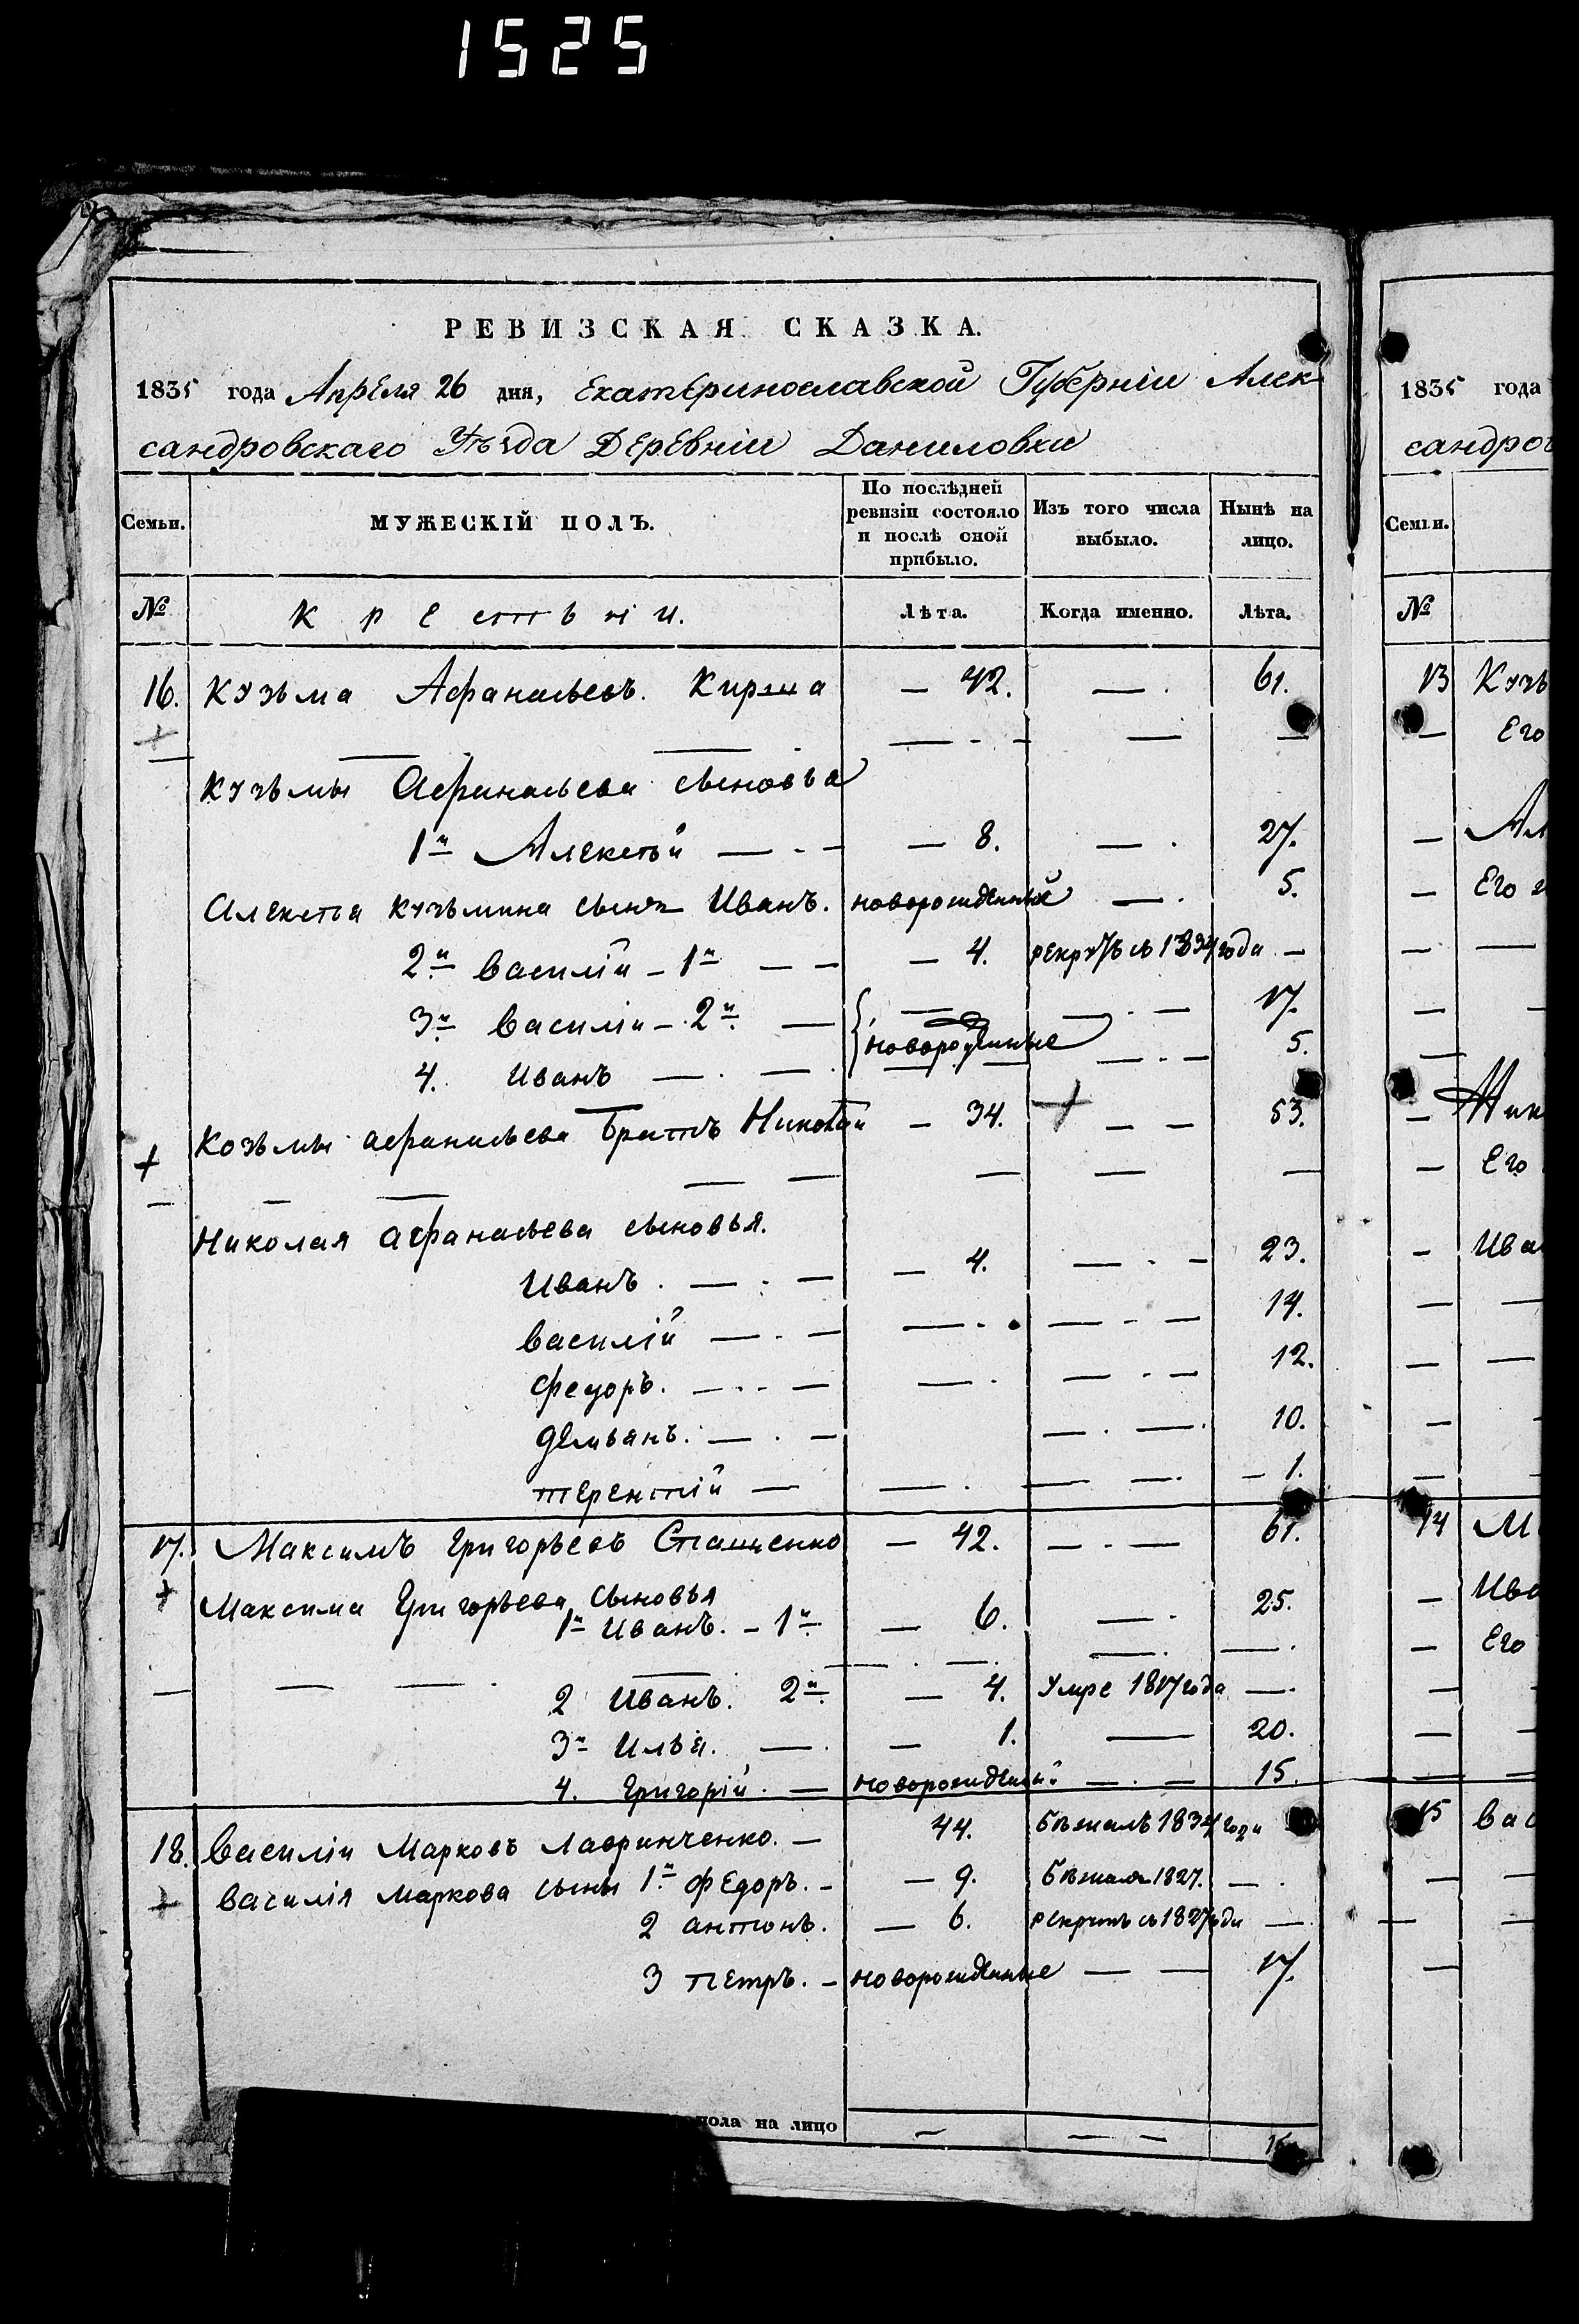 1525
РЕВИЗСКАЯ СКАЗКА.
1835 года Апреля 26 дня, Екатеринославской Губернiи Алек-
сандровскаго Уѣзда Деревнiи Даниловки
Семьи. МУЖЕСКIЙ ПОЛЪ. По послѣдней ревизiи состояло и послѣ оной прибыло. Изъ того числа выбыло. Нынѣ на лицо.
№ Лѣта. Когда именно. Лѣта.
16. Кузьма Афанасьевъ. Кирша — 42. — . 61.
Кузьмы Афанасьева сыновья
1й Алексѣй — - — — 8. — . 27.
Алексѣя Кузьмина сынъ Иванъ. новорожденный — . 5.
2й Василiй — 1й — — — 4. рекрутъ съ 1834 года —
3й Василiй — 2й — — — . — 17.
новорожденные
4. Иванъ — . — — . — 5.
Козьмы Афанасьева Братъ Николай — 34. + — — 53.
Николая Афанасьева сыновья.
Иванъ . — . — — 4. — . - 23.
Василiй — . — — . — - — 14.
Федоръ. — . . — — . — . — 12.
Демьянъ. — . — — . — . 10.
Терентiй — — . — — . — 1.
17. Максимъ Григорьевъ Сташенко — 42. — . — 61.
+ Максима Григорьева сыновья
1й Иванъ. — 1й — 6. — . 25.
2 Иванъ. 2й — 4. Умре 1817 года — .
3й Илья. — . — 1. — 20.
4. Григорiй . — новорожденый — . — 15.
18. Василiй Марковъ Лавринченко. — 44. Бѣжалъ 1834 года
+ Василiя Маркова сыны 1й Федоръ. — — 9. Бѣжалъ 1827. — .
2 Антонъ. — 6. рекрутъ съ 1827 года —
3 Петръ. — новорожденные — — 17.
пола на лицо — — —
1835 года
сандров
Семьи.
№
13 Кузь
— Его
— Ал
— Его
— Ник
— Его
— Ива
14 М
— Ива
— Его
15 Вас